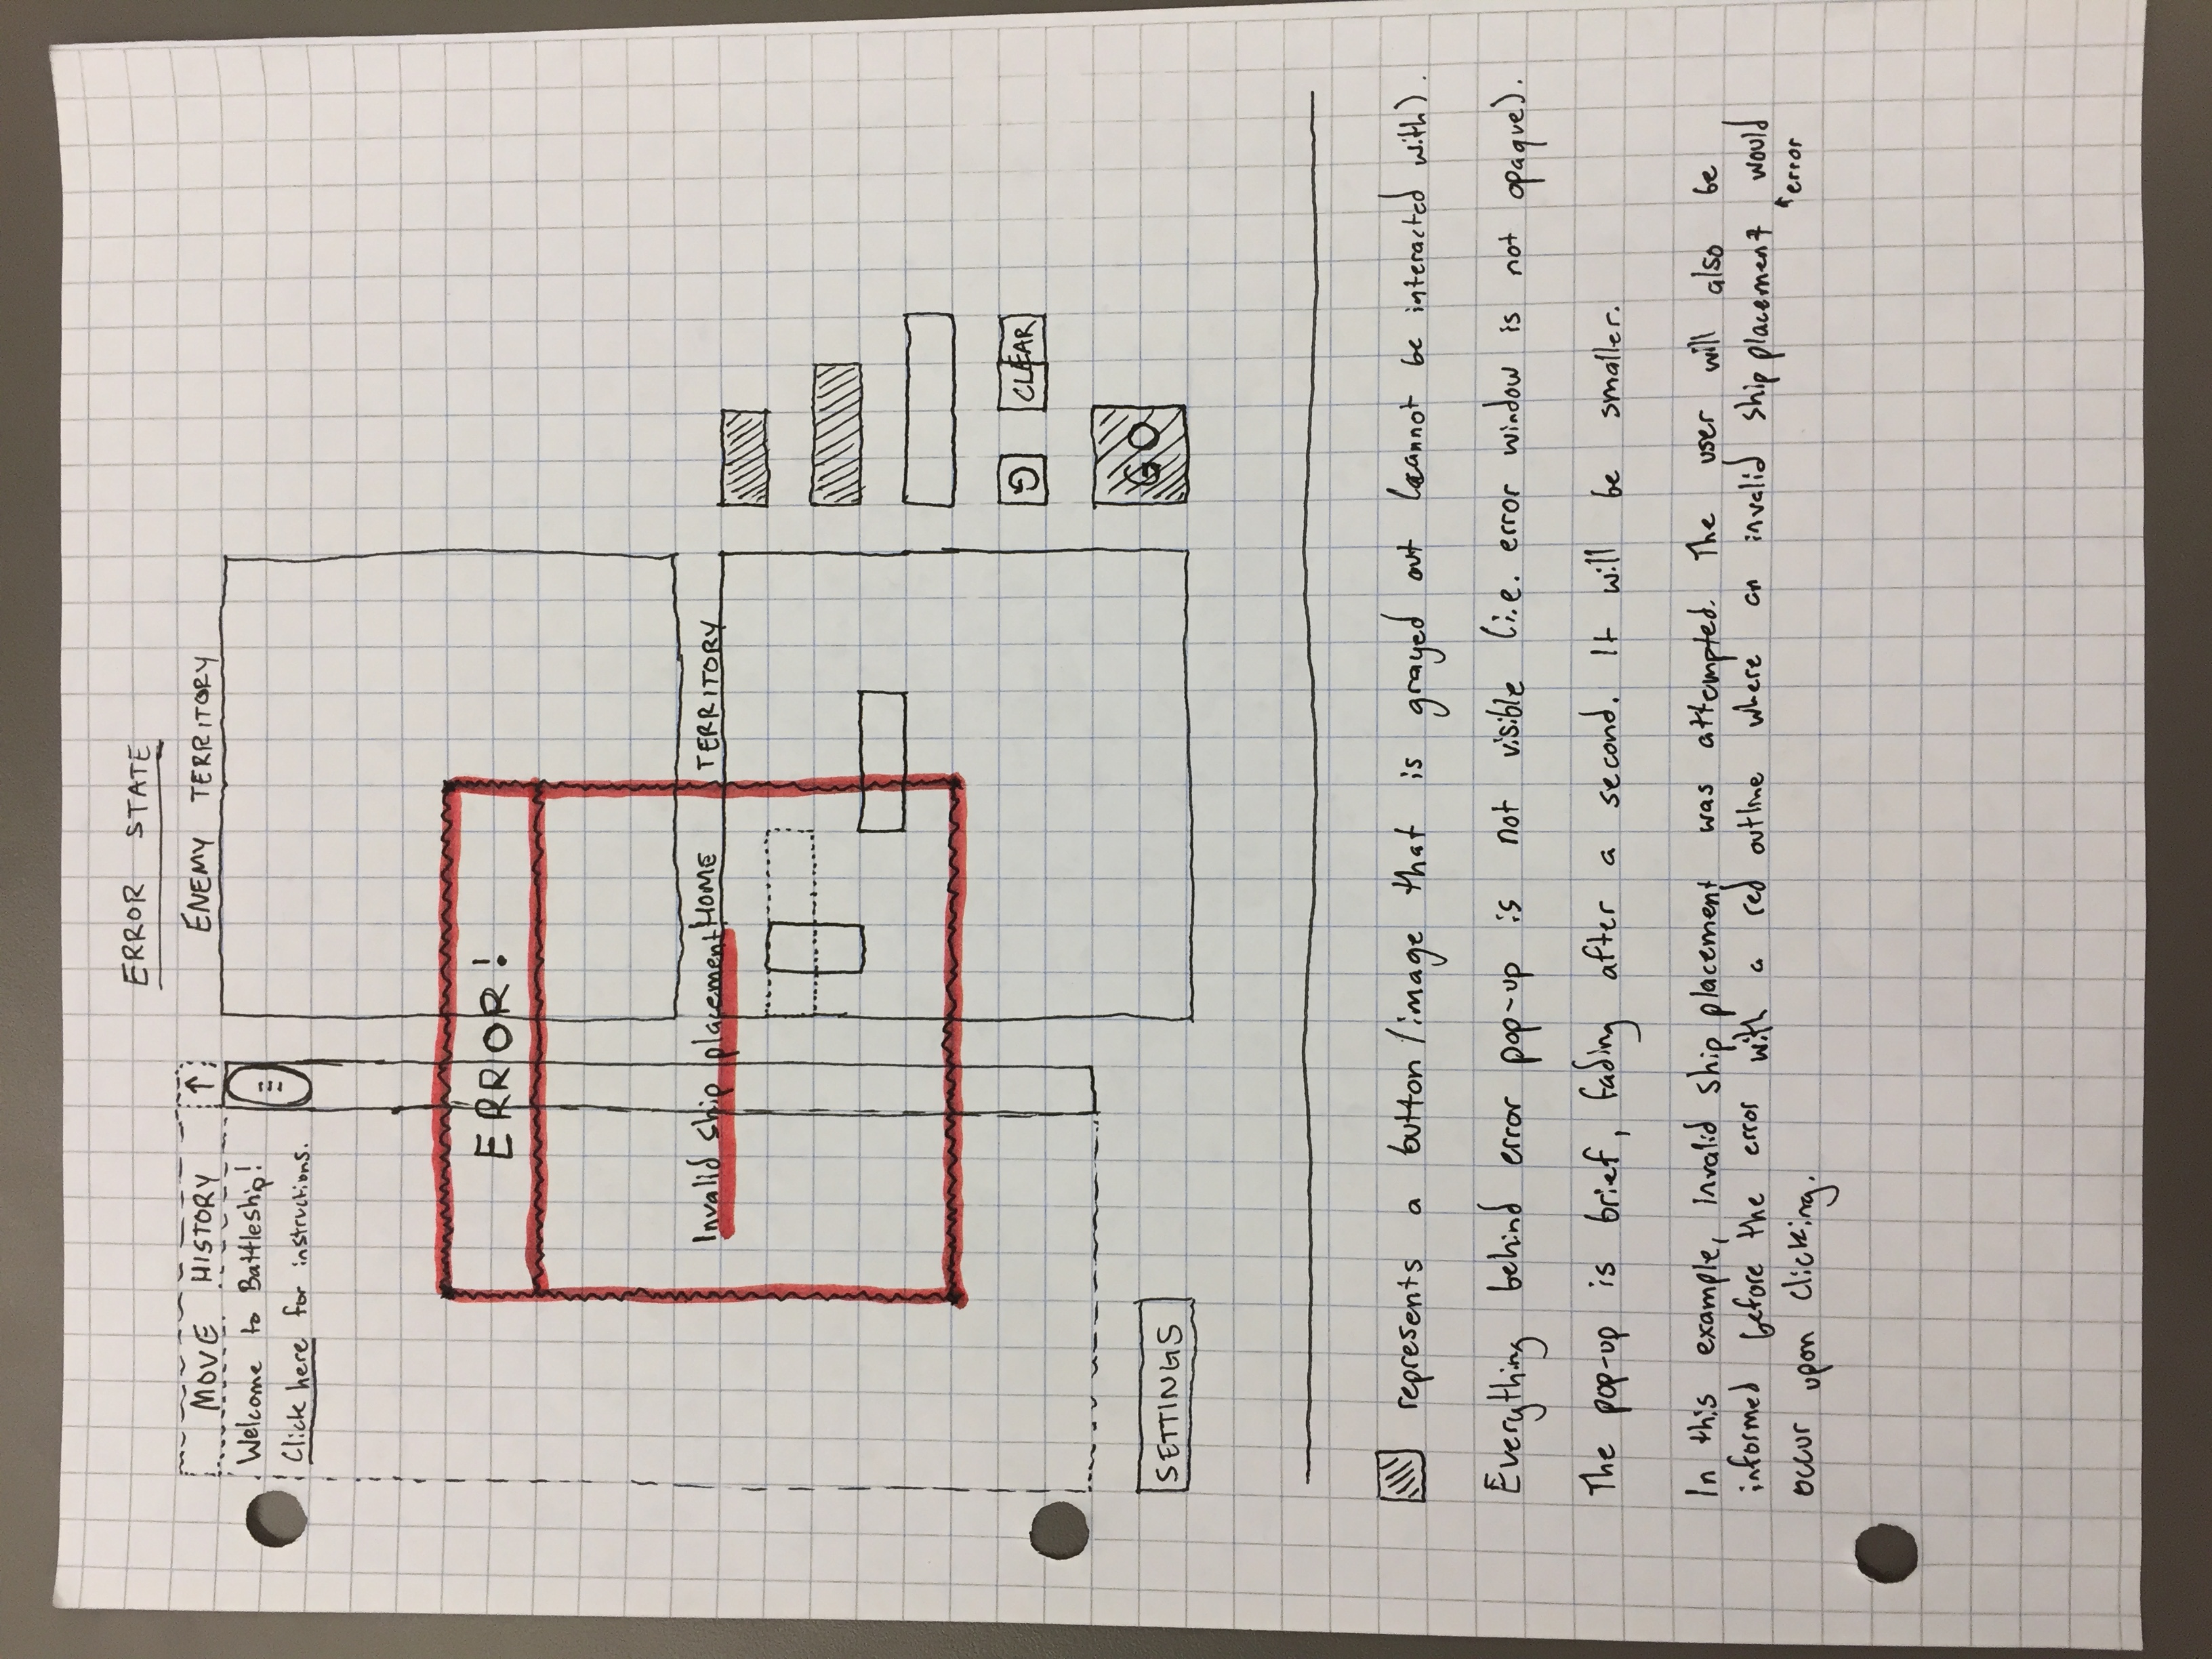 ERROR STATE
MOVE HISTORY ↑
ENEMY TERRITORY
Welcome to Battleship!
Click here for instructions.
ERROR!
Invalid ship placement
HOME TERRITORY
CLEAR
GO
SETTINGS
represents a button/image that is grayed out (cannot be interacted with).
Everything behind error pop-up is not visible (i.e. error window is not opaque).
The pop-up is brief, fading after a second. It will be smaller.
In this example, invalid ship placement was attempted. The user will also be
informed before the error with a red outline where an invalid ship placement would
↑error
occur upon clicking.